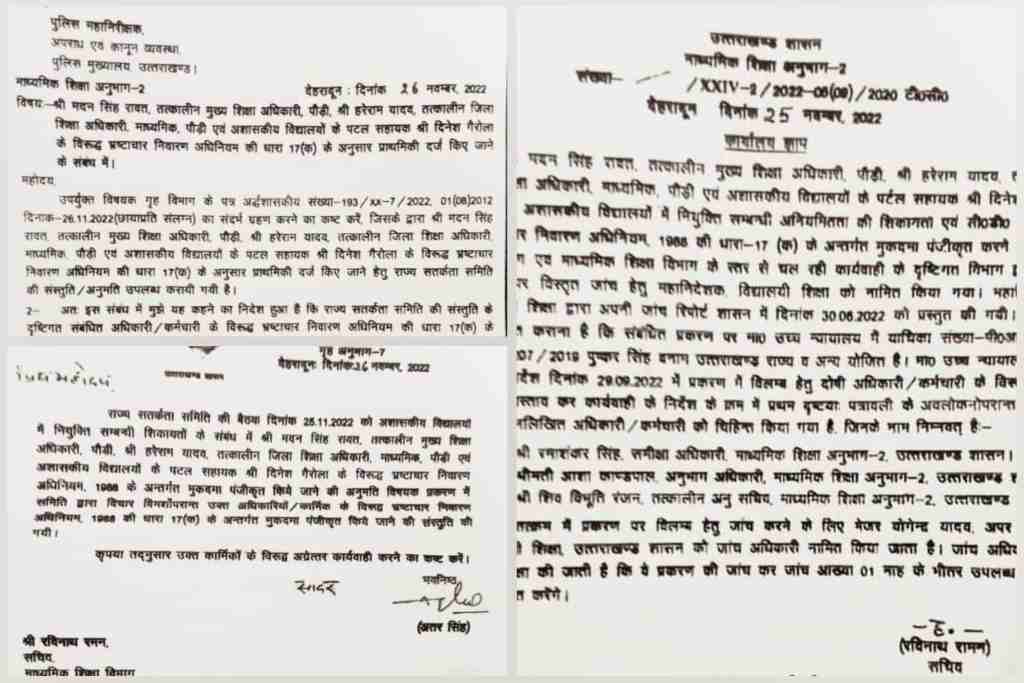 पुलिस महानिरीक्षक,
अपराध एवं कानून व्यवस्था,
पुलिस मुख्यालय उत्तराखण्ड।
माध्यमिक शिक्षा अनुभाग-2 देहरादून : दिनांक 26 नवम्बर, 2022
विषयः-श्री मदन सिंह रावत, तत्कालीन मुख्य शिक्षा अधिकारी, पौड़ी, श्री हरेराम यादव, तत्कालीन जिला
शिक्षा अधिकारी, माध्यमिक, पौड़ी एवं अशासकीय विद्यालयों के पटल सहायक श्री दिनेश गैरोला
के विरूद्ध भ्रष्टाचार निवारण अधिनियम की धारा 17(क) के अनुसार प्राथमिकी दर्ज किए जाने
के संबंध में।
महोदय,
उपर्युक्त विषयक गृह विभाग के पत्र अर्द्धशासकीय संख्या-193/xx-7/2022, 01(06)2012
दिनाक-26.11.2022(छायाप्रति संलग्न) का संदर्भ ग्रहण करने का कष्ट करें, जिसके द्वारा श्री मदन सिंह
रावत, तत्कालीन मुख्य शिक्षा अधिकारी, पौड़ी, श्री हरेराम यादव, तत्कालीन जिला शिक्षा अधिकारी,
माध्यमिक, पौड़ी एवं अशासकीय विद्यालयों के पटल सहायक श्री दिनेश गैरोला के विरूद्ध भ्रष्टाचार
निवारण अधिनियम की धारा 17(क) के अनुसार प्राथमिकी दर्ज किए जाने हेतु राज्य सतर्कता समिति
की संस्तुति/अनुमति उपलब्ध करायी गयी है।
2- अतः इस संबंध में मुझे यह कहने का निदेश हुआ है कि राज्य सतर्कता समिति की संस्तुति के
दृष्टिगत संबंधित अधिकारी/कर्मचारी के विरूद्ध भ्रष्टाचार निवारण अधिनियम की धारा 17(क) के
गृह अनुभाग-7
देहरादूनः दिनांक 26 नवम्बर, 2022
प्रिय महोदय,
उत्तराखण्ड शासन
राज्य सतर्कता समिति की बैठक दिनांक 25.11.2022 को अशासकीय विद्यालयों
में नियुक्ति सम्बन्धी शिकायतों के संबंध में श्री मदन सिंह रावत, तत्कालीन मुख्य शिक्षा
अधिकारी, पौड़ी, श्री हरेराम यादव, तत्कालीन जिला शिक्षा अधिकारी, माध्यमिक, पौड़ी एवं
अशासकीय विद्यालयों के पटल सहायक श्री दिनेश गैरोला के विरूद्ध भ्रष्टाचार निवारण
अधिनियम, 1988 के अन्तर्गत मुकदमा पंजीकृत किये जाने की अनुमति विषयक प्रकरण में
समिति द्वारा विचार विमर्शोपरान्त उक्त अधिकारियों/कार्मिक के विरूद्ध भ्रष्टाचार निवारण
अधिनियम, 1988 की धारा 17(क) के अन्तर्गत मुकदमा पंजीकृत किये जाने की संस्तुति की
गयी।
कृपया तद्नुसार उक्त कार्मिकों के विरूद्ध अग्रेत्तर कार्यवाही करने का कष्ट करें।
सादर
भवनिष्ठ,
(अतर सिंह)
श्री रविनाथ रमन,
सचिव,
माध्यमिक शिक्षा विभाग
उत्तराखण्ड शासन
माध्यमिक शिक्षा अनुभाग-2
संख्या- /XXIV-2/2022-06(08)/2020 टी०सी०
देहरादून दिनांक 25 नवम्बर, 2022
कार्यालय ज्ञाप
मदन सिंह रावत, तत्कालीन मुख्य शिक्षा अधिकारी, पौड़ी, श्री हरेराम यादव,
अधिकारी, माध्यमिक, पौड़ी एवं अशासकीय विद्यालयों के पटल सहायक श्री
अशासकीय विद्यालयों में नियुक्ति सम्बन्धी अनियमितता की शिकायतों एवं सी०डी०
निवारण अधिनियम, 1988 की धारा-17 (क) के अन्तर्गत मुकदमा पंजीकृत करने
एवं माध्यमिक शिक्षा विभाग के स्तर से चल रही कार्यवाही के दृष्टिगत विभाग
विस्तृत जांच हेतु महानिदेशक, विद्यालयी शिक्षा को नामित किया गया।
शिक्षा द्वारा अपनी जांच रिपोर्ट शासन में दिनांक 30.06.2022 को प्रस्तुत की गयी।
कराना है कि संबंधित प्रकरण पर मा० उच्च न्यायालय में याचिका
/2019 पुष्कर सिंह बनाम उत्तराखण्ड राज्य व अन्य योजित है। मा० उच्च
दिनांक 29.09.2022 में प्रकरण में विलम्ब हेतु दोषी अधिकारी/कर्मचारी के
कर कार्यवाही के निर्देश के क्रम में प्रथम दृष्टयाः पत्रावली के अवलोकनोपरान्त
अधिकारी/कर्मचारी को चिन्हित किया गया है, जिनके नाम निम्नवत् हैः-
श्री रमाशंकर सिंह, समीक्षा अधिकारी, माध्यमिक शिक्षा अनुभाग-2, उत्तराखण्ड शासन।
श्रीमती आशा काण्डपाल, अनुभाग अधिकारी, माध्यमिक शिक्षा अनुभाग-2, उत्तराखण्ड
श्री शिव विभूति रंजन, तत्कालीन अनु सचिव, माध्यमिक शिक्षा अनुभाग-2, उत्तराखण्ड
में प्रकरण पर विलम्ब हेतु जांच करने के लिए मेजर योगेन्द्र यादव, अपर
शिक्षा, उत्तराखण्ड शासन को जांच अधिकारी नामित किया जाता है। जांच
की जाती है कि वे प्रकरण की जांच कर जांच आख्या 01 माह के भीतर उपलब्ध
करेंगे।
-ह.-
(रविनाथ रामन)
सचिव